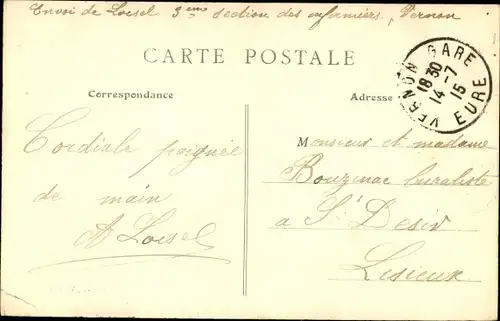 Envoi de Loisel 3eme section des infirmiers, Vernon
CARTE POSTALE
Correspondance
Adresse
VERNON GARE
18 30
14 -7
15
EURE
Cordiale poignée
de main
A Loisel
Monsieur et madame
buraliste
a St Desir
Lisieux